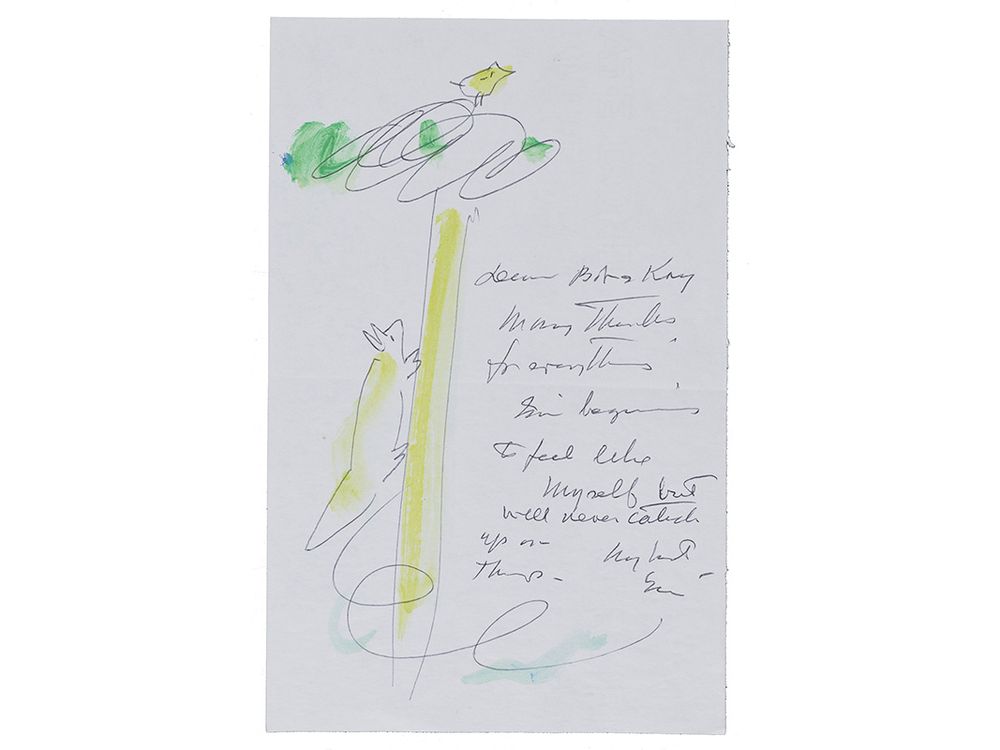 Dear Bob & Kay
Many Thanks
for everything
I'm beginning
to feel like
myself but
will never catch
up on
things –
My best